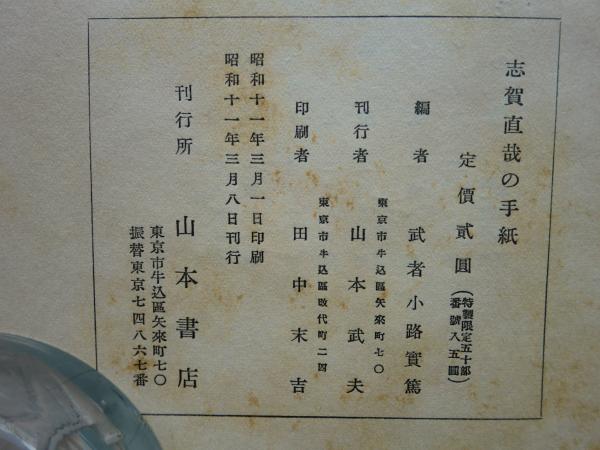 志賀直哉の手紙
定價貳圓（特製限定五十部番號入五圓）
編者 武者小路實篤
東京市牛込區矢來町七〇
刊行者 山本武夫
東京市牛込區改代町二四
印刷者 田中末吉
昭和十一年三月一日印刷
昭和十一年三月八日刊行
刊行所 山本書店
東京市牛込區矢來町七〇
振替東京七四八六七番